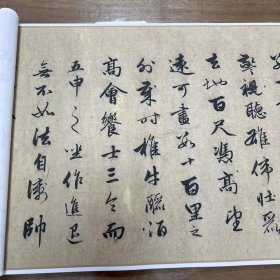 視聽雄偉壯麗
去地百尺憑高望
遠可盡數十百里之
外歲時椎牛釃酒
高會饗士三令而
五申之坐作進退
無不如法自衛帥